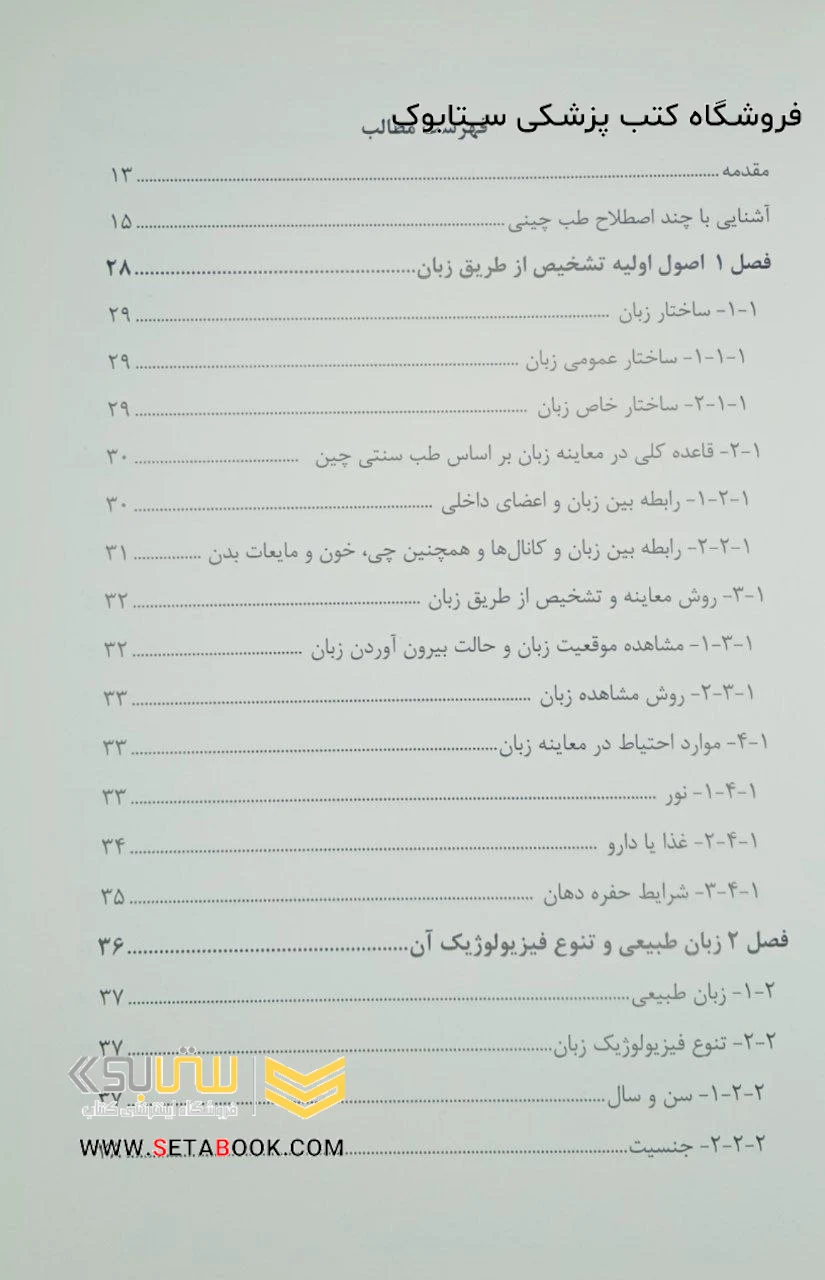 فروشگاه کتب پزشکی ستابوک
فهرست مطالب
مقدمه ................ ۱۳
آشنایی با چند اصطلاح طب چینی ................ ۱۵
فصل ۱ اصول اولیه تشخیص از طریق زبان ................ ۲۸
۱-۱- ساختار زبان ................ ۲۹
۱-۱-۱- ساختار عمومی زبان ................ ۲۹
۲-۱-۱- ساختار خاص زبان ................ ۲۹
۲-۱- قاعده کلی در معاینه زبان بر اساس طب سنتی چین ................ ۳۰
۱-۲-۱- رابطه بین زبان و اعضای داخلی ................ ۳۰
۲-۲-۱- رابطه بین زبان و کانال‌ها و همچنین چی، خون و مایعات بدن ................ ۳۱
۳-۱- روش معاینه و تشخیص از طریق زبان ................ ۳۲
۱-۳-۱- مشاهده موقعیت زبان و حالت بیرون آوردن زبان ................ ۳۲
۲-۳-۱- روش مشاهده زبان ................ ۳۳
۴-۱- موارد احتیاط در معاینه زبان ................ ۳۳
۱-۴-۱- نور ................ ۳۳
۲-۴-۱- غذا یا دارو ................ ۳۴
۳-۴-۱- شرایط حفره دهان ................ ۳۵
فصل ۲ زبان طبیعی و تنوع فیزیولوژیک آن ................ ۳۶
۱-۲- زبان طبیعی ................ ۳۷
۲-۲- تنوع فیزیولوژیک زبان ................ ۳۷
۱-۲-۲- سن و سال ................ ۳۷
۲-۲-۲- جنسیت ................
ستابوک
فروشگاه اینترنتی کتاب
WWW.SETABOOK.COM